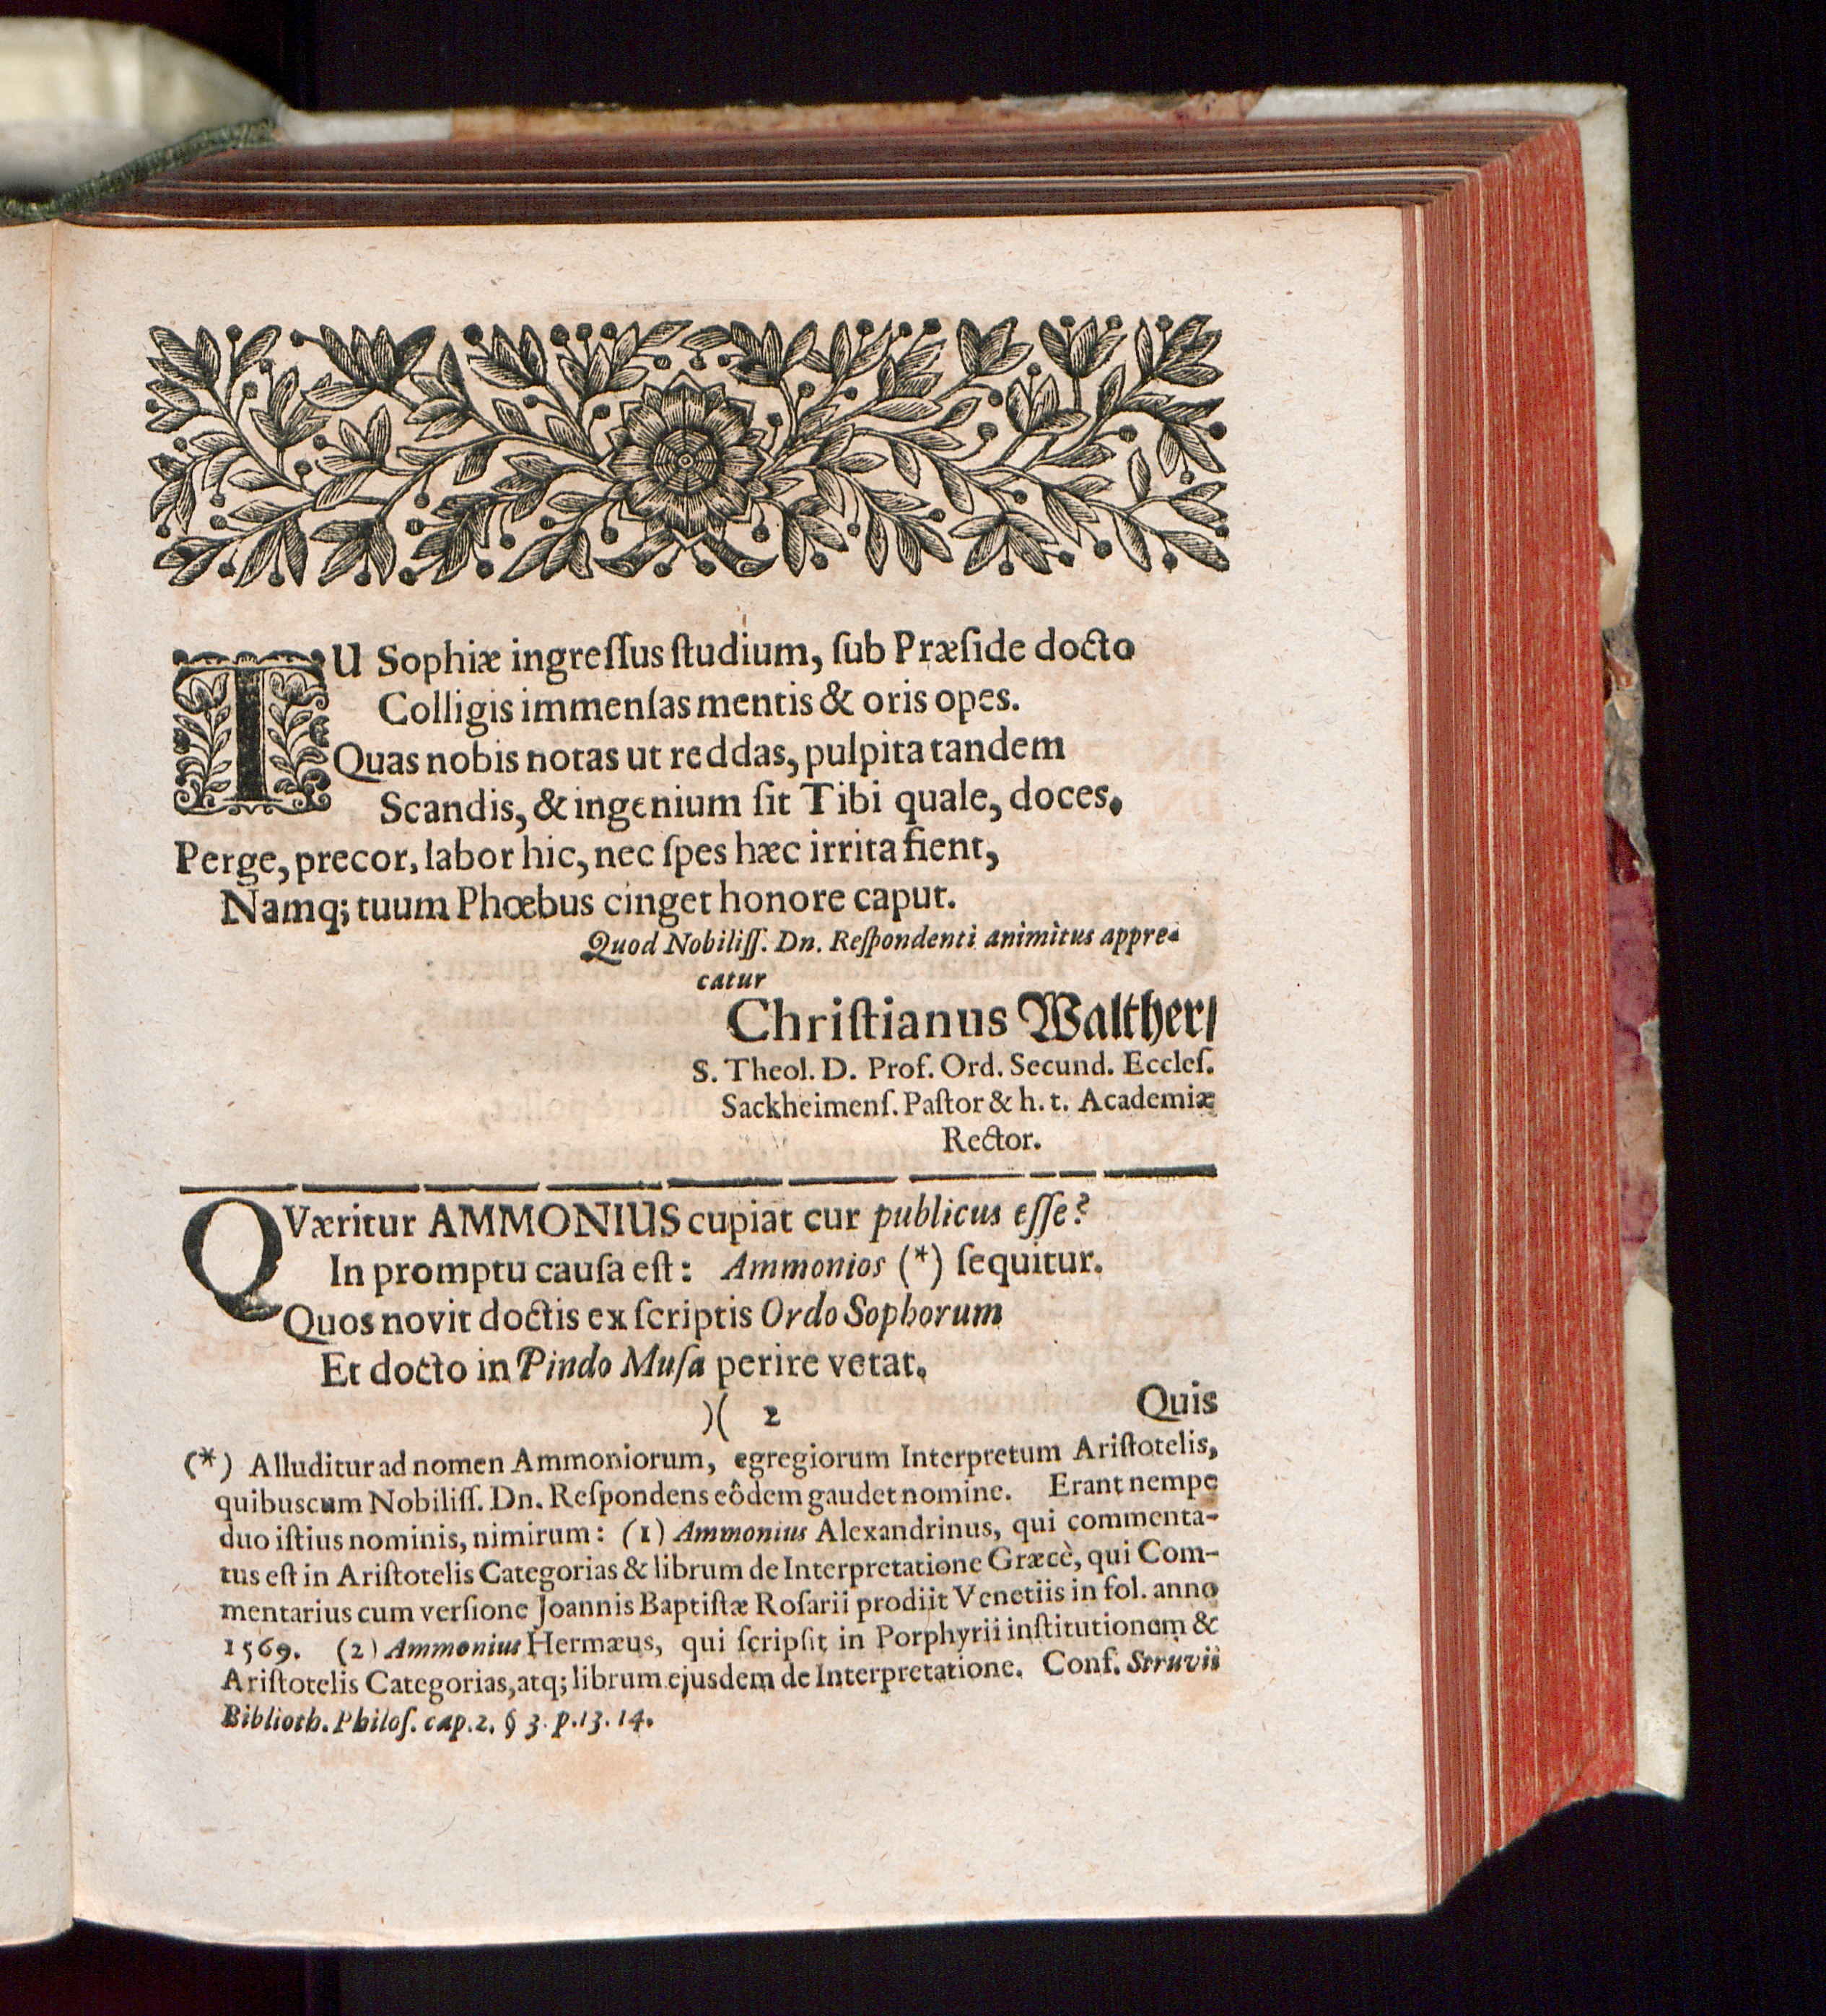 TU Sophiæ ingreſſus ſtudium, ſub Præſide docto
Colligis immenſas mentis & oris opes.
Quas nobis notas ut reddas, pulpita tandem
Scandis, & ingenium ſit Tibi quale, doces.
Perge, precor, labor hic, nec ſpes hæc irrita fient,
Namq; tuum Phœbus cinget honore caput.
Quod Nobiliſſ. Dn. Reſpondenti animitus appre-
catur
Chriſtianus Walther/
S. Theol. D. Prof. Ord. Secund. Eccleſ.
Sackheimenſ. Paſtor & h. t. Academiæ
Rector.
QVæritur AMMONIUS cupiat cur publicus eſſe?
In promptu cauſa eſt: Ammonios (*) ſequitur.
Quos novit doctis ex ſcriptis Ordo Sophorum
Et docto in Pindo Muſa perire vetat.
)( 2
Quis
(*) Alluditur ad nomen Ammoniorum, egregiorum Interpretum Ariſtotelis,
quibuscum Nobiliſſ. Dn. Reſpondens eôdem gaudet nomine. Erant nempe
duo iſtius nominis, nimirum: (1) Ammonius Alexandrinus, qui commenta-
tus eſt in Ariſtotelis Categorias & librum de Interpretatione Græcè, qui Com-
mentarius cum verſione Joannis Baptiſtæ Roſarii prodiit Venetiis in fol. anno
1569. (2) Ammonius Hermæus, qui ſcripſit in Porphyrii inſtitutionem &
Ariſtotelis Categorias, atq; librum ejusdem de Interpretatione. Conf. Struvii
Biblioth. Philoſ. cap. 2. § 3. p. 13. 14.